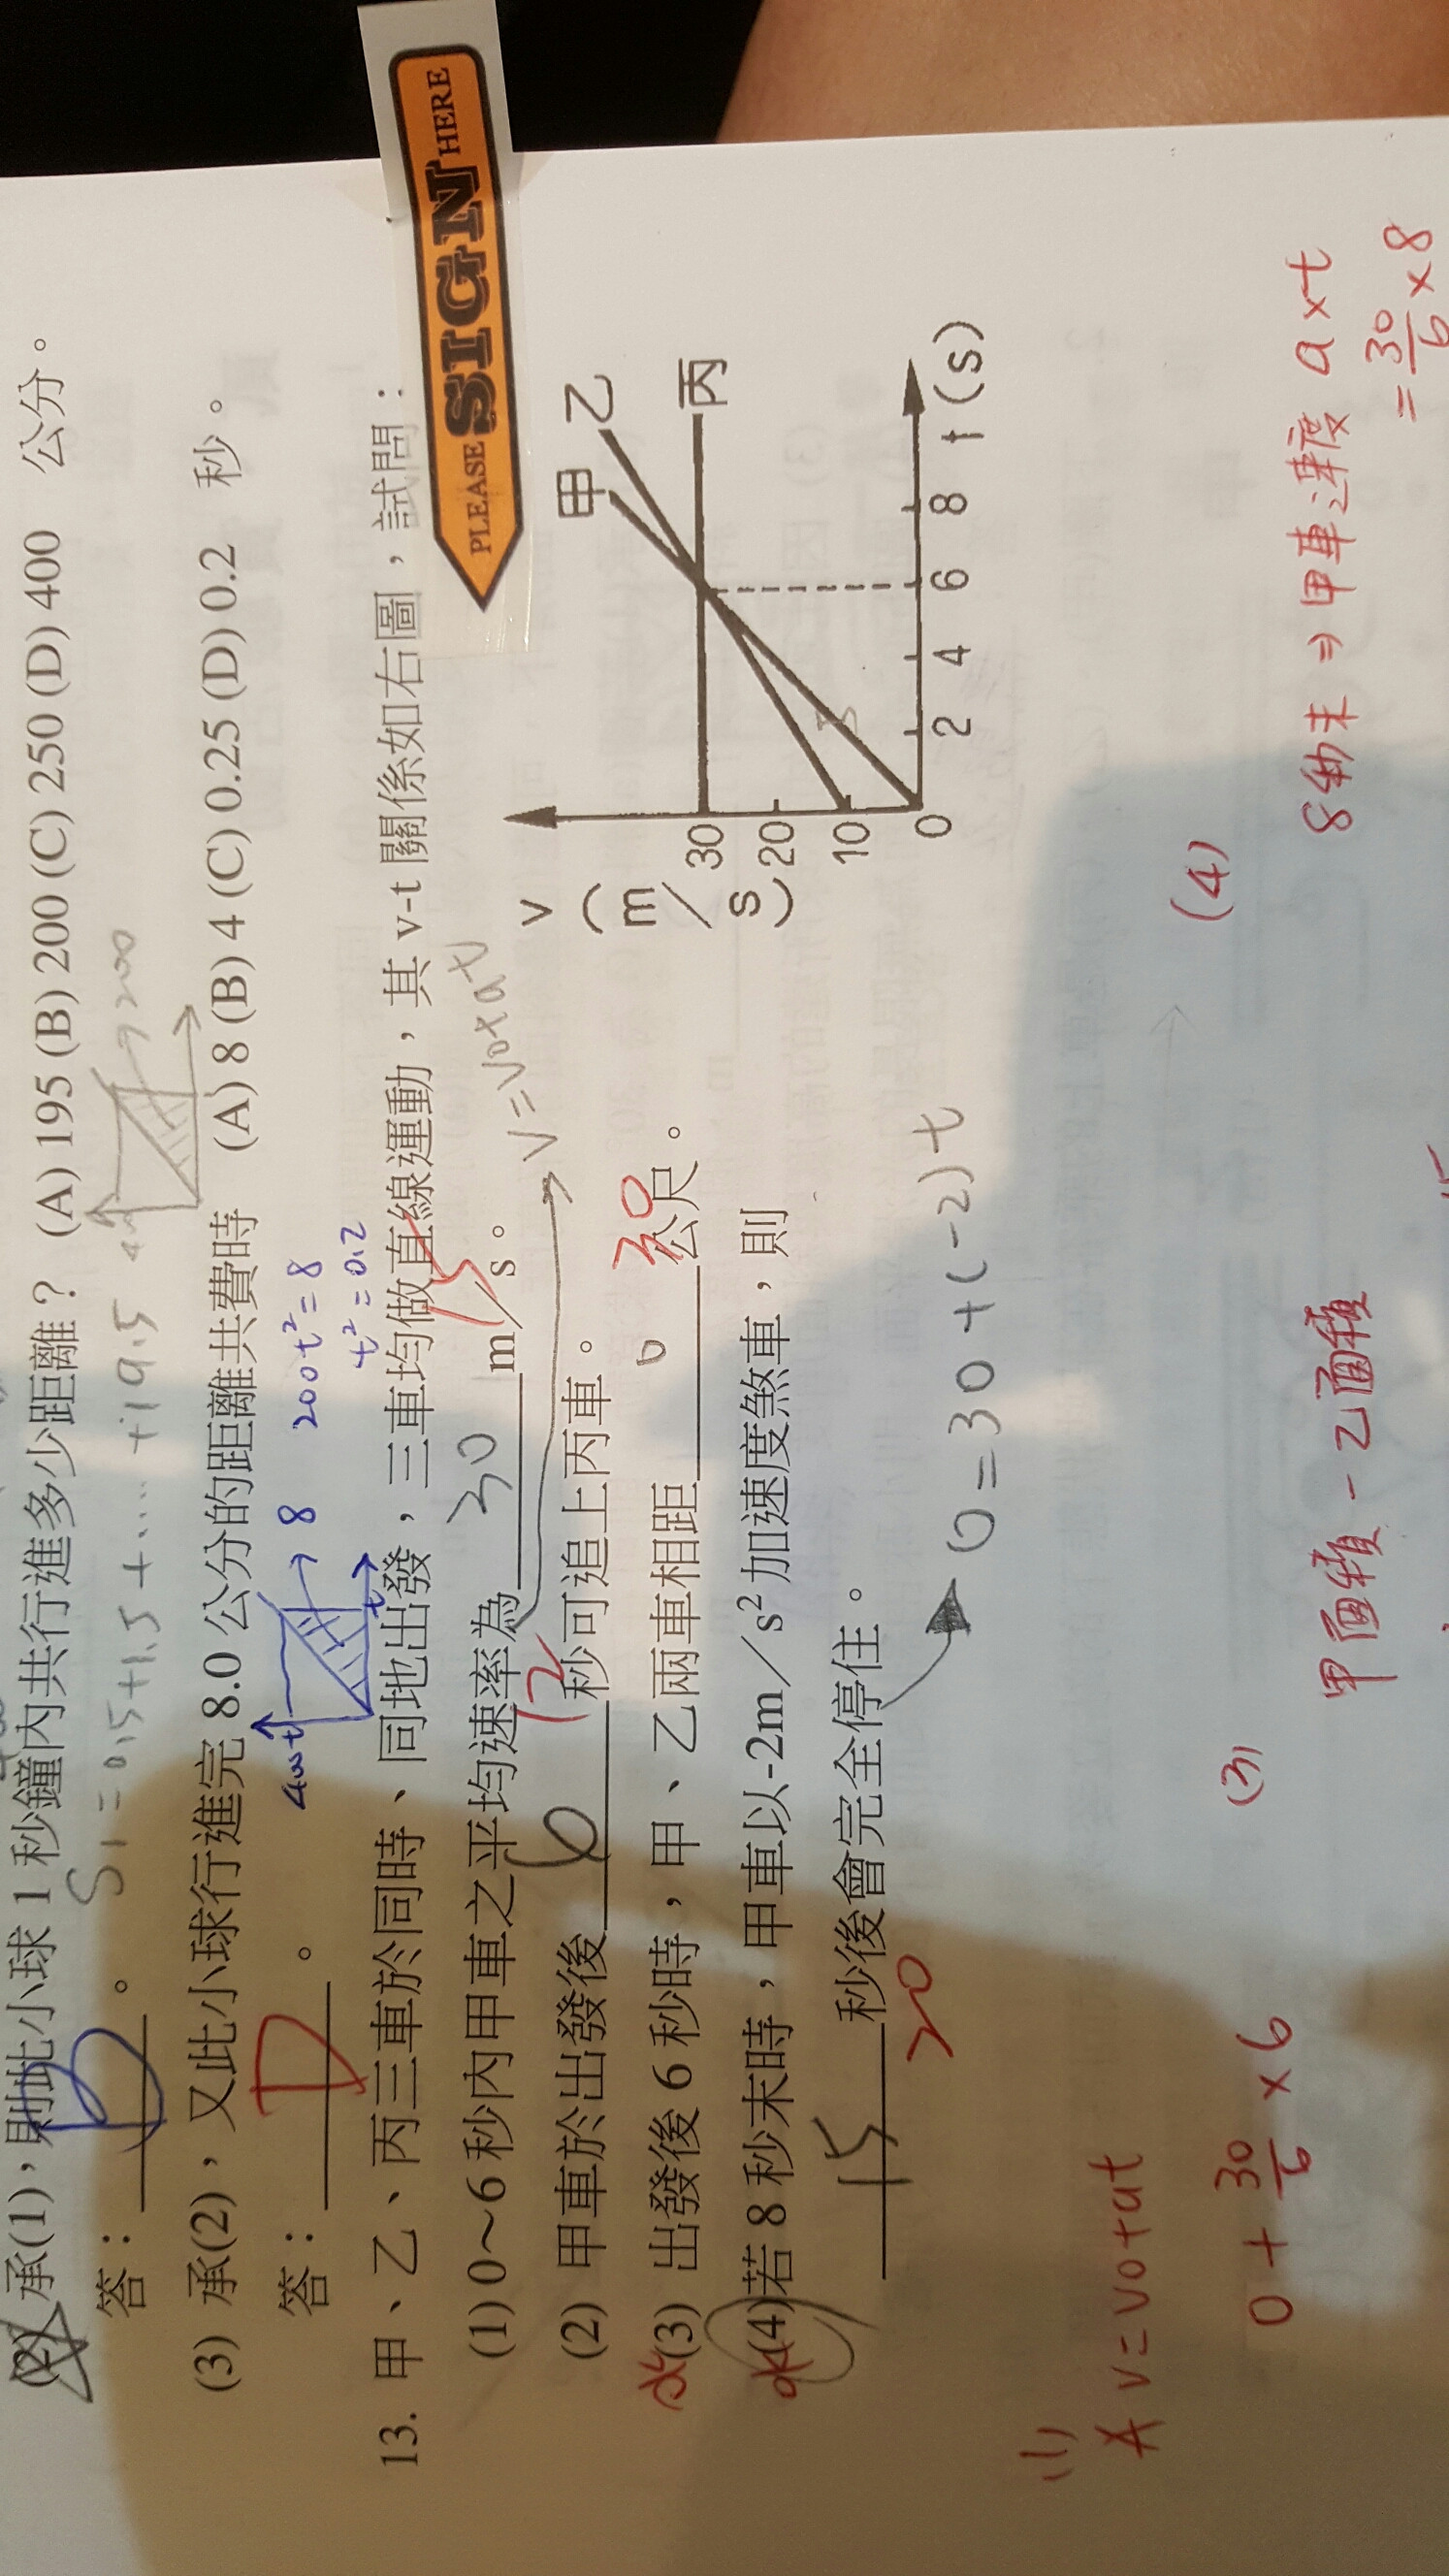 (2) 承(1)，則此小球 1 秒鐘內共行進多少距離？ (A) 195 (B) 200 (C) 250 (D) 400 公分。
答：B。
S1=0.15+1.5+....+19.5
200
(3) 承(2)，又此小球行進完 8.0 公分的距離共費時 (A) 8 (B) 4 (C) 0.25 (D) 0.2 秒。
答：D。
400t
8
t
200t²=8
t²=0.2
13. 甲、乙、丙三車於同時、同地出發，三車均做直線運動，其 v-t 關係如右圖，試問：
(1) 0～6 秒內甲車之平均速率為 30 m／s。
15
V=V0+at
(2) 甲車於出發後 6 秒可追上丙車。
12
(3) 出發後 6 秒時，甲、乙兩車相距 0 公尺。
30
(4)若 8 秒末時，甲車以-2m／s² 加速度煞車，則
15 秒後會完全停住。
20
0=30+(-2)t
PLEASE SIGN HERE
v(m／s)
30
20
10
0
2
4
6
8
t(s)
甲
乙
丙
(1)
V=V0+at
0+30/6×6
(3)
甲面積-乙面積
(4)
8秒末⇒甲車速度 a×t
=30/6×8